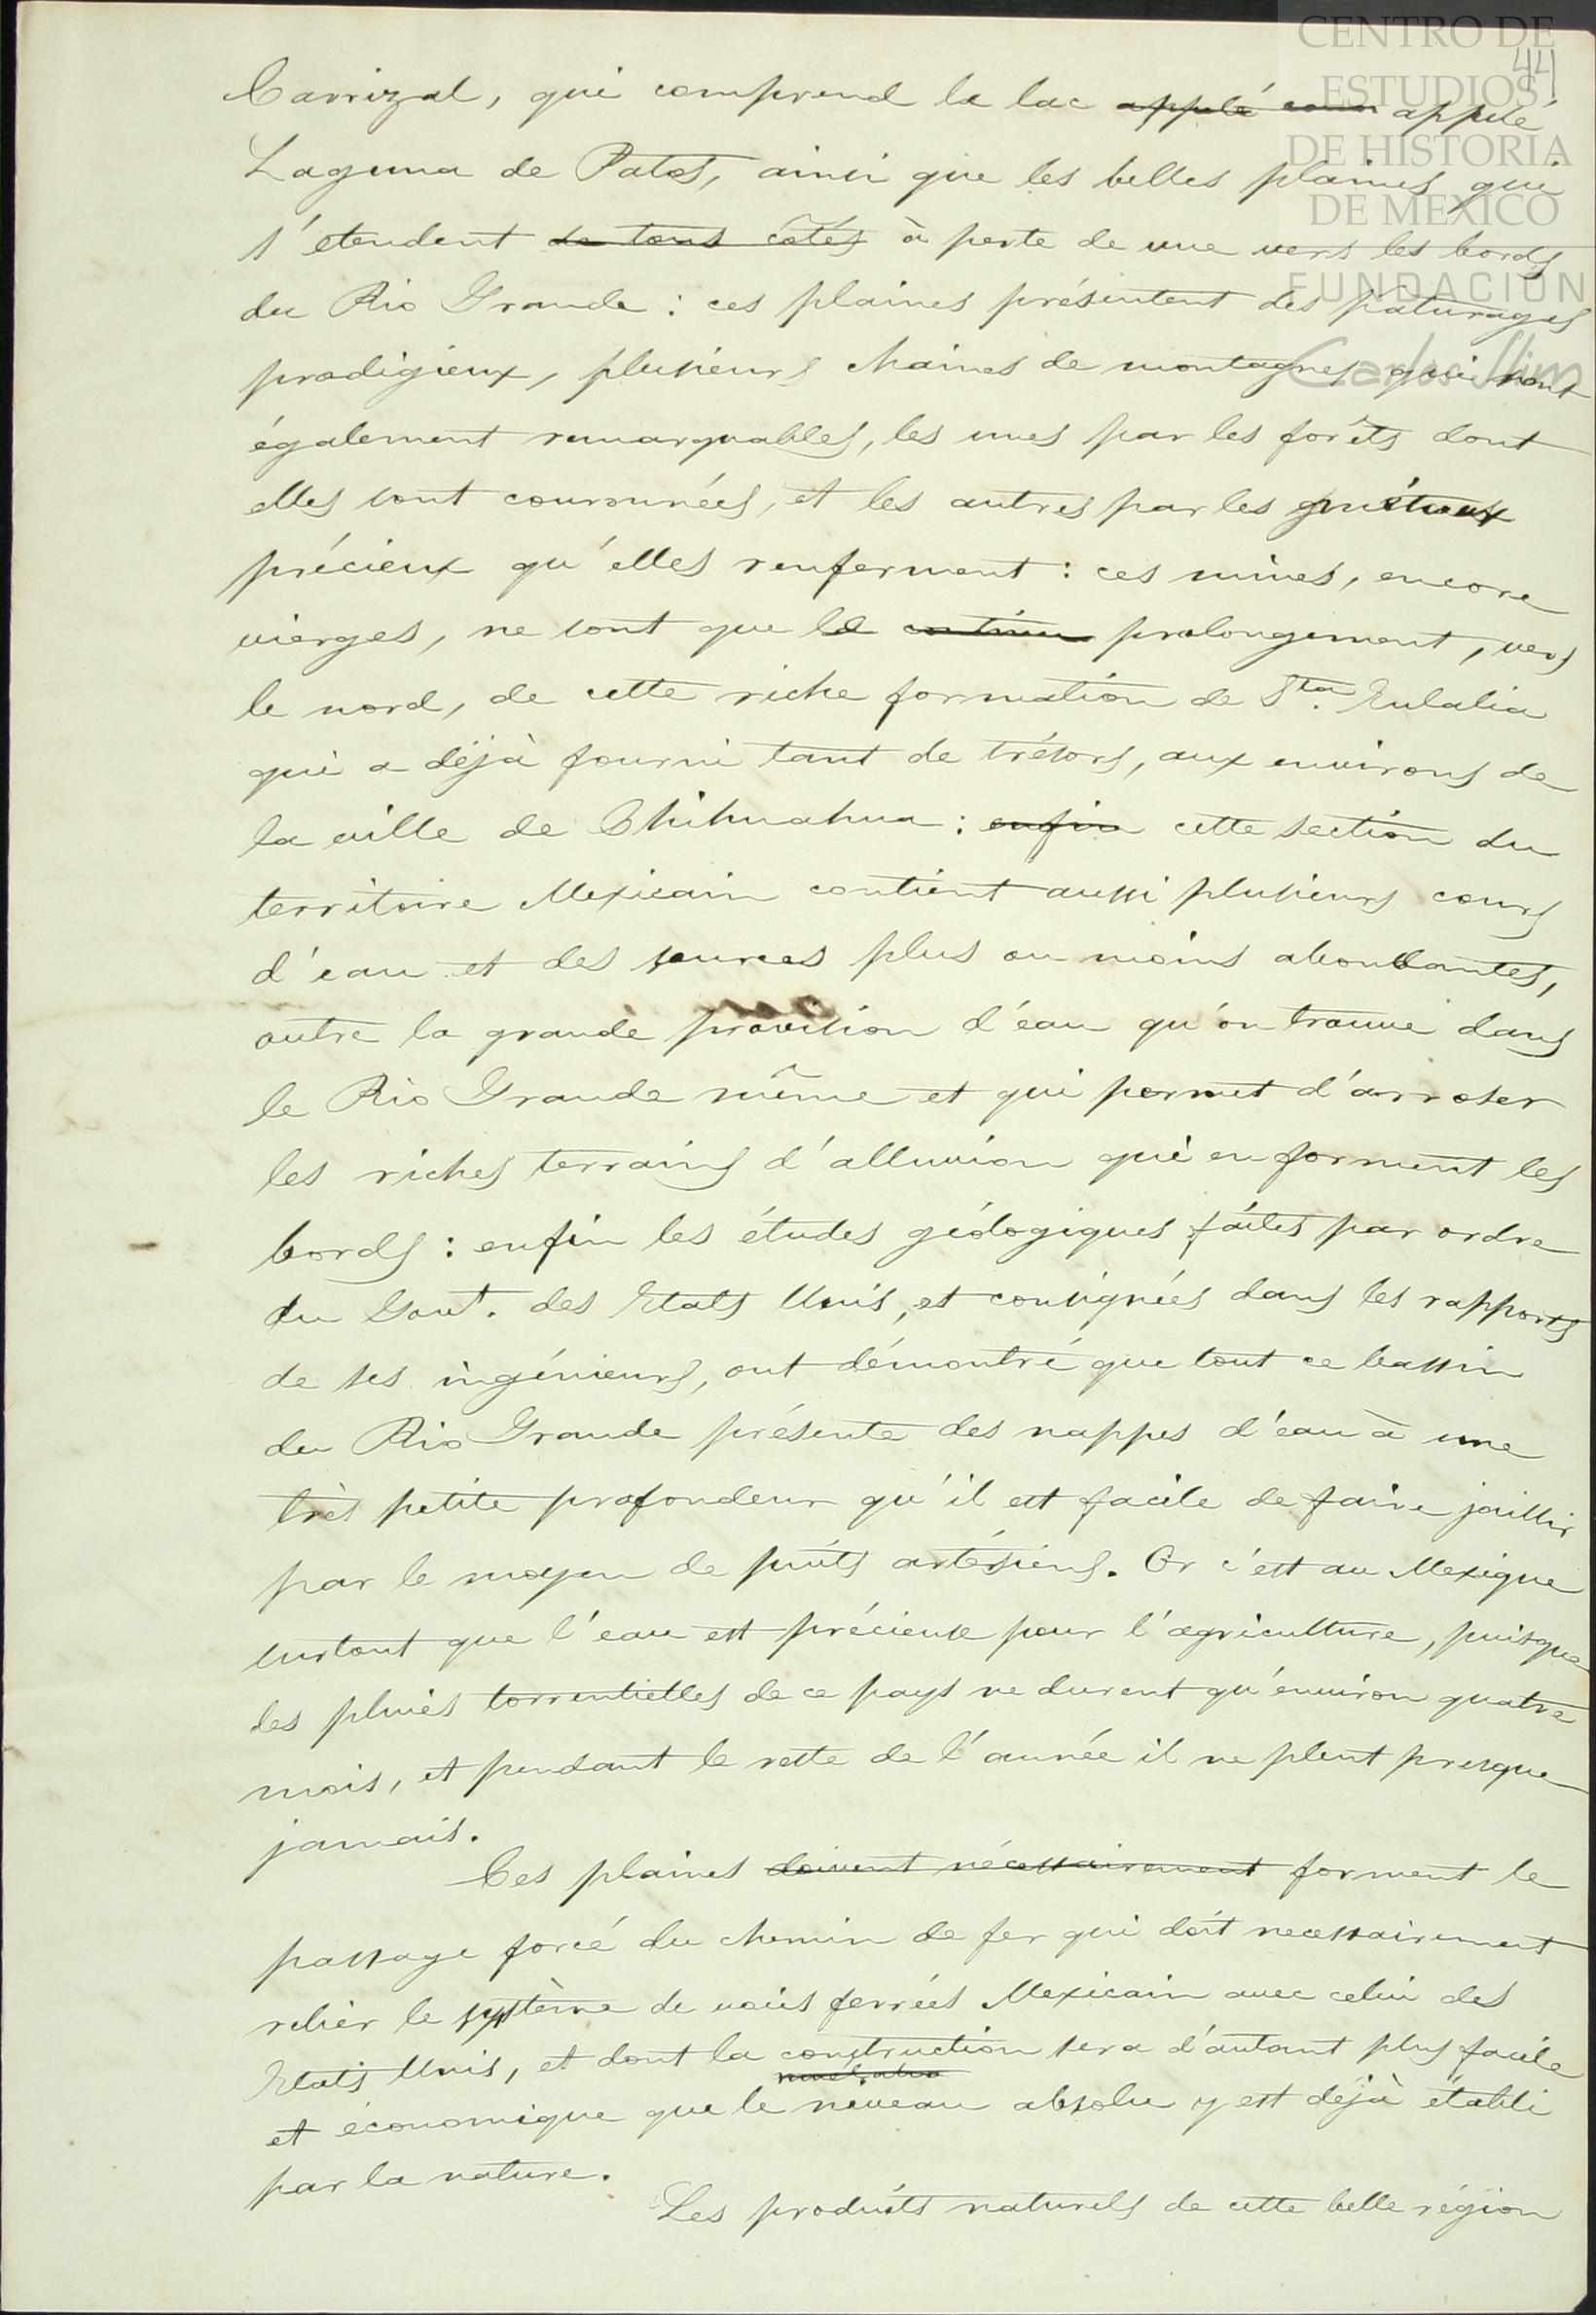 CENTRO DE
ESTUDIOS
DE HISTORIA
DE MEXICO
FUNDACION
Carlos Slim
44
Carrizal, qui comprend le lac appelé appelé
Laguna de Patos, ainsi que les belles plaines qui
s'etendent de tous côtés à perte de vue vers les bords
du Rio Grande : ces plaines présentent des paturages
prodigieux, plusieurs chaines de montagnes qui sont
également remarquables, les unes par les forêts dont
elles sont couronnées, et les autres par les métaux
précieux qu'elles renferment : ces mines, encore
vierges, ne sont que le prolongement, vers
le nord, de cette riche formation de Sta. Eulalia
qui a déjà fourni tant de trésors, aux environs de
la ville de Chihuahua : enfin cette section du
territoire Mexicain contient aussi plusieurs cours
d'eau et des sources plus ou moins abondantes,
outre la grande provision d'eau qu'on trouve dans
le Rio Grande même et qui permet d'arroser
les riches terrains d'alluvion qui en forment les
bords : enfin les études géologiques faites par ordre
du Gouvt. des Etats Unis, et consignées dans les rapports
de ses ingénieurs, ont démontré que tout ce bassin
du Rio Grande présente des nappes d'eau à une
très petite profondeur qu'il est facile de faire jaillir
par le moyen de puits artésiens. Or c'est au Mexique
surtout que l'eau est précieuse pour l'agriculture, puisque
les pluies torrentielles de ce pays ne durent qu'environ quatre
mois, et pendant le reste de l'année il ne pleut presque
jamais.
Ces plaines doivent nécessairement forment le
passage forcé du chemin de fer qui doit necessairement
relier le système de voies ferrées Mexicain avec celui des
Etats Unis, et dont la construction sera d'autant plus facile
et économique que le niveau absolu y est déjà établi
par la nature.
Les produits naturels de cette belle région